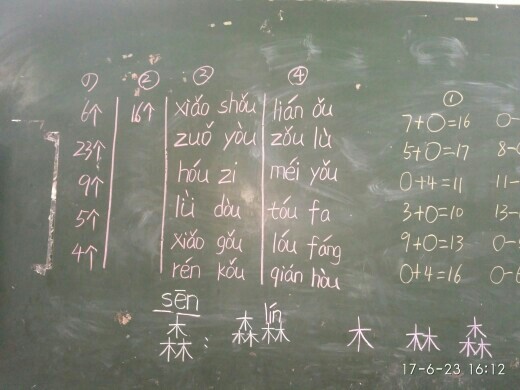 ① ② ③ ④ ①
6个 16个 xiǎo shǒu lián ǒu 7+○=16 ○-
23个 zuǒ yòu zǒu lù 5+○=17 8-
9个 hóu zi méi yǒu ○+4=11 11-
5个 lǜ dòu tóu fa 3+○=10 13-
4个 xiǎo gǒu lóu fáng 9+○=13 ○-
rén kǒu qián hòu ○+4=16 ○-6
sēn lín
森: 森林 木 林 森
17-6-23 16:12